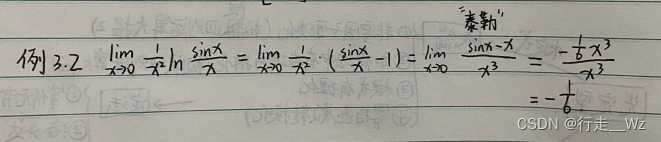 "泰勒"
例3.2 lim x→0 1/x² ln sinx/x = lim x→0 1/x² · (sinx/x - 1) = lim x→0 sinx-x/x³ = -1/6 x³/x³
= -1/6.
CSDN @行走__Wz